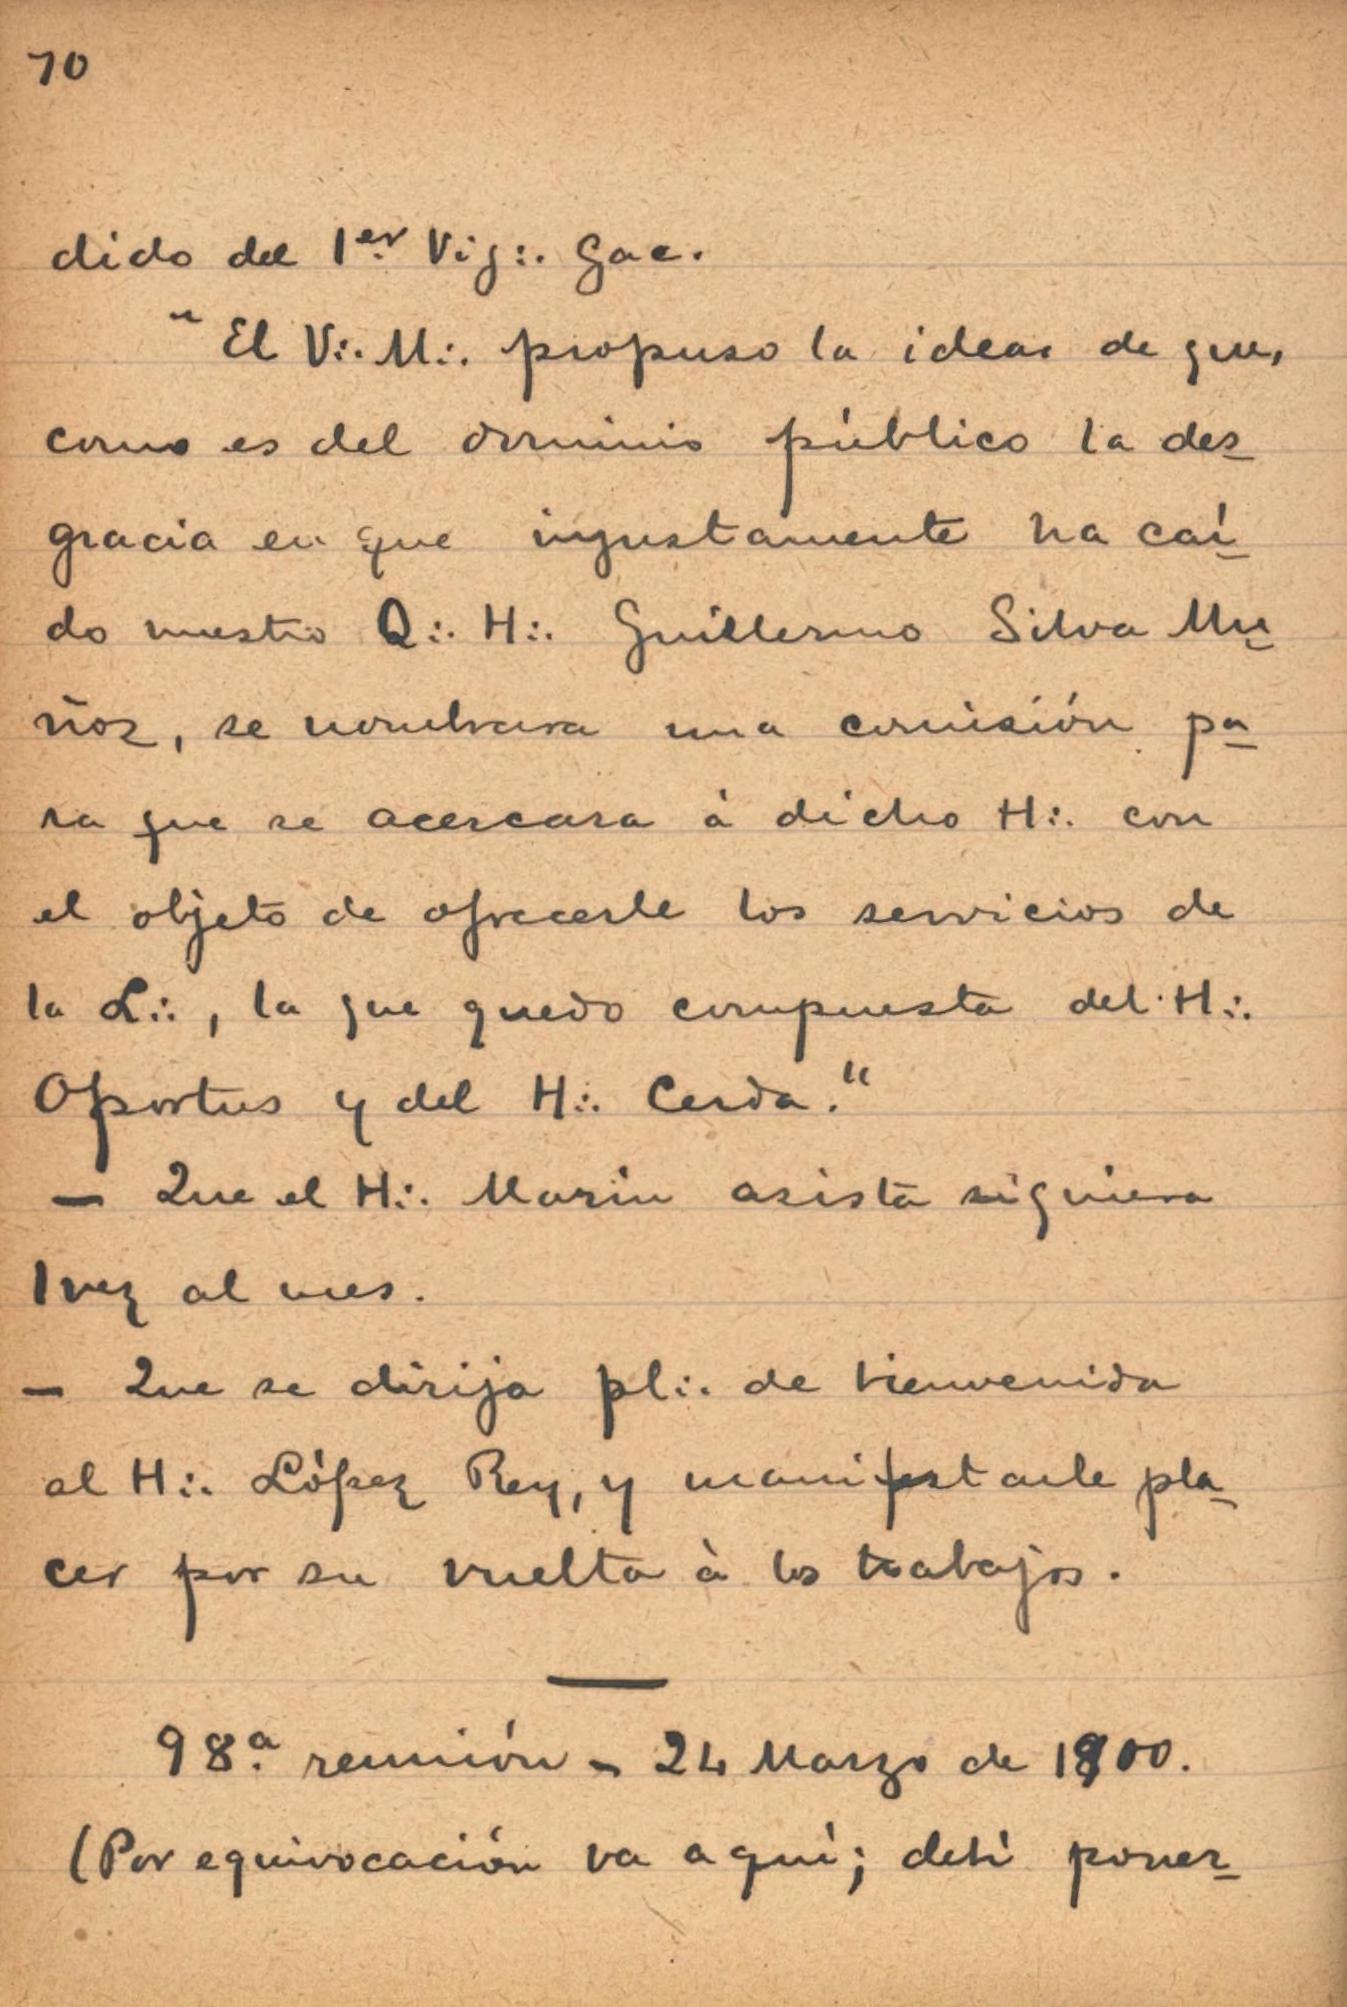 70
dido del 1er Vig∴ Gac.
"El V∴ M∴ propuso la idea de que,
como es del dominio público la des-
gracia en que injustamente ha caí-
do nuestro Q∴ H∴ Guillermo Silva Mu-
ñoz, se nombrara una comisión pa-
ra que se acercara á dicho H∴ con
el objeto de ofrecerle los servicios de
la L∴, la que quedo compuesta del H∴
Oportus y del H∴ Cerda."
— Que el H∴ Marin asista siquiera
1 vez al mes.
— Que se dirija pl∴ de bienvenida
al H∴ López Rey, y manifestarle pla-
cer por su vuelta à los trabajos.
98.a reunión - 24 Marzo de 1900.
(Por equivocación va aquí; debí poner-